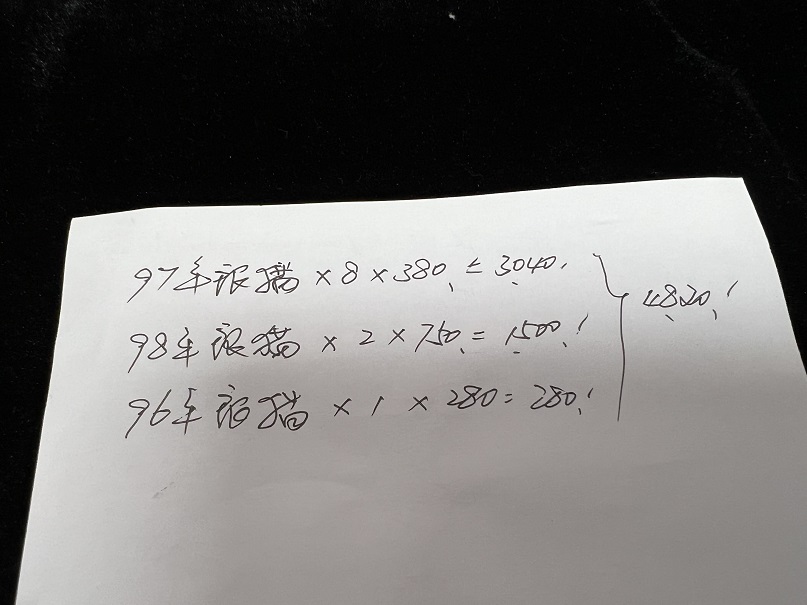 97年银猫×8×380.=3040.
98年银猫×2×750.=1500.!
96年银猫×1×280=280.!
4820.!